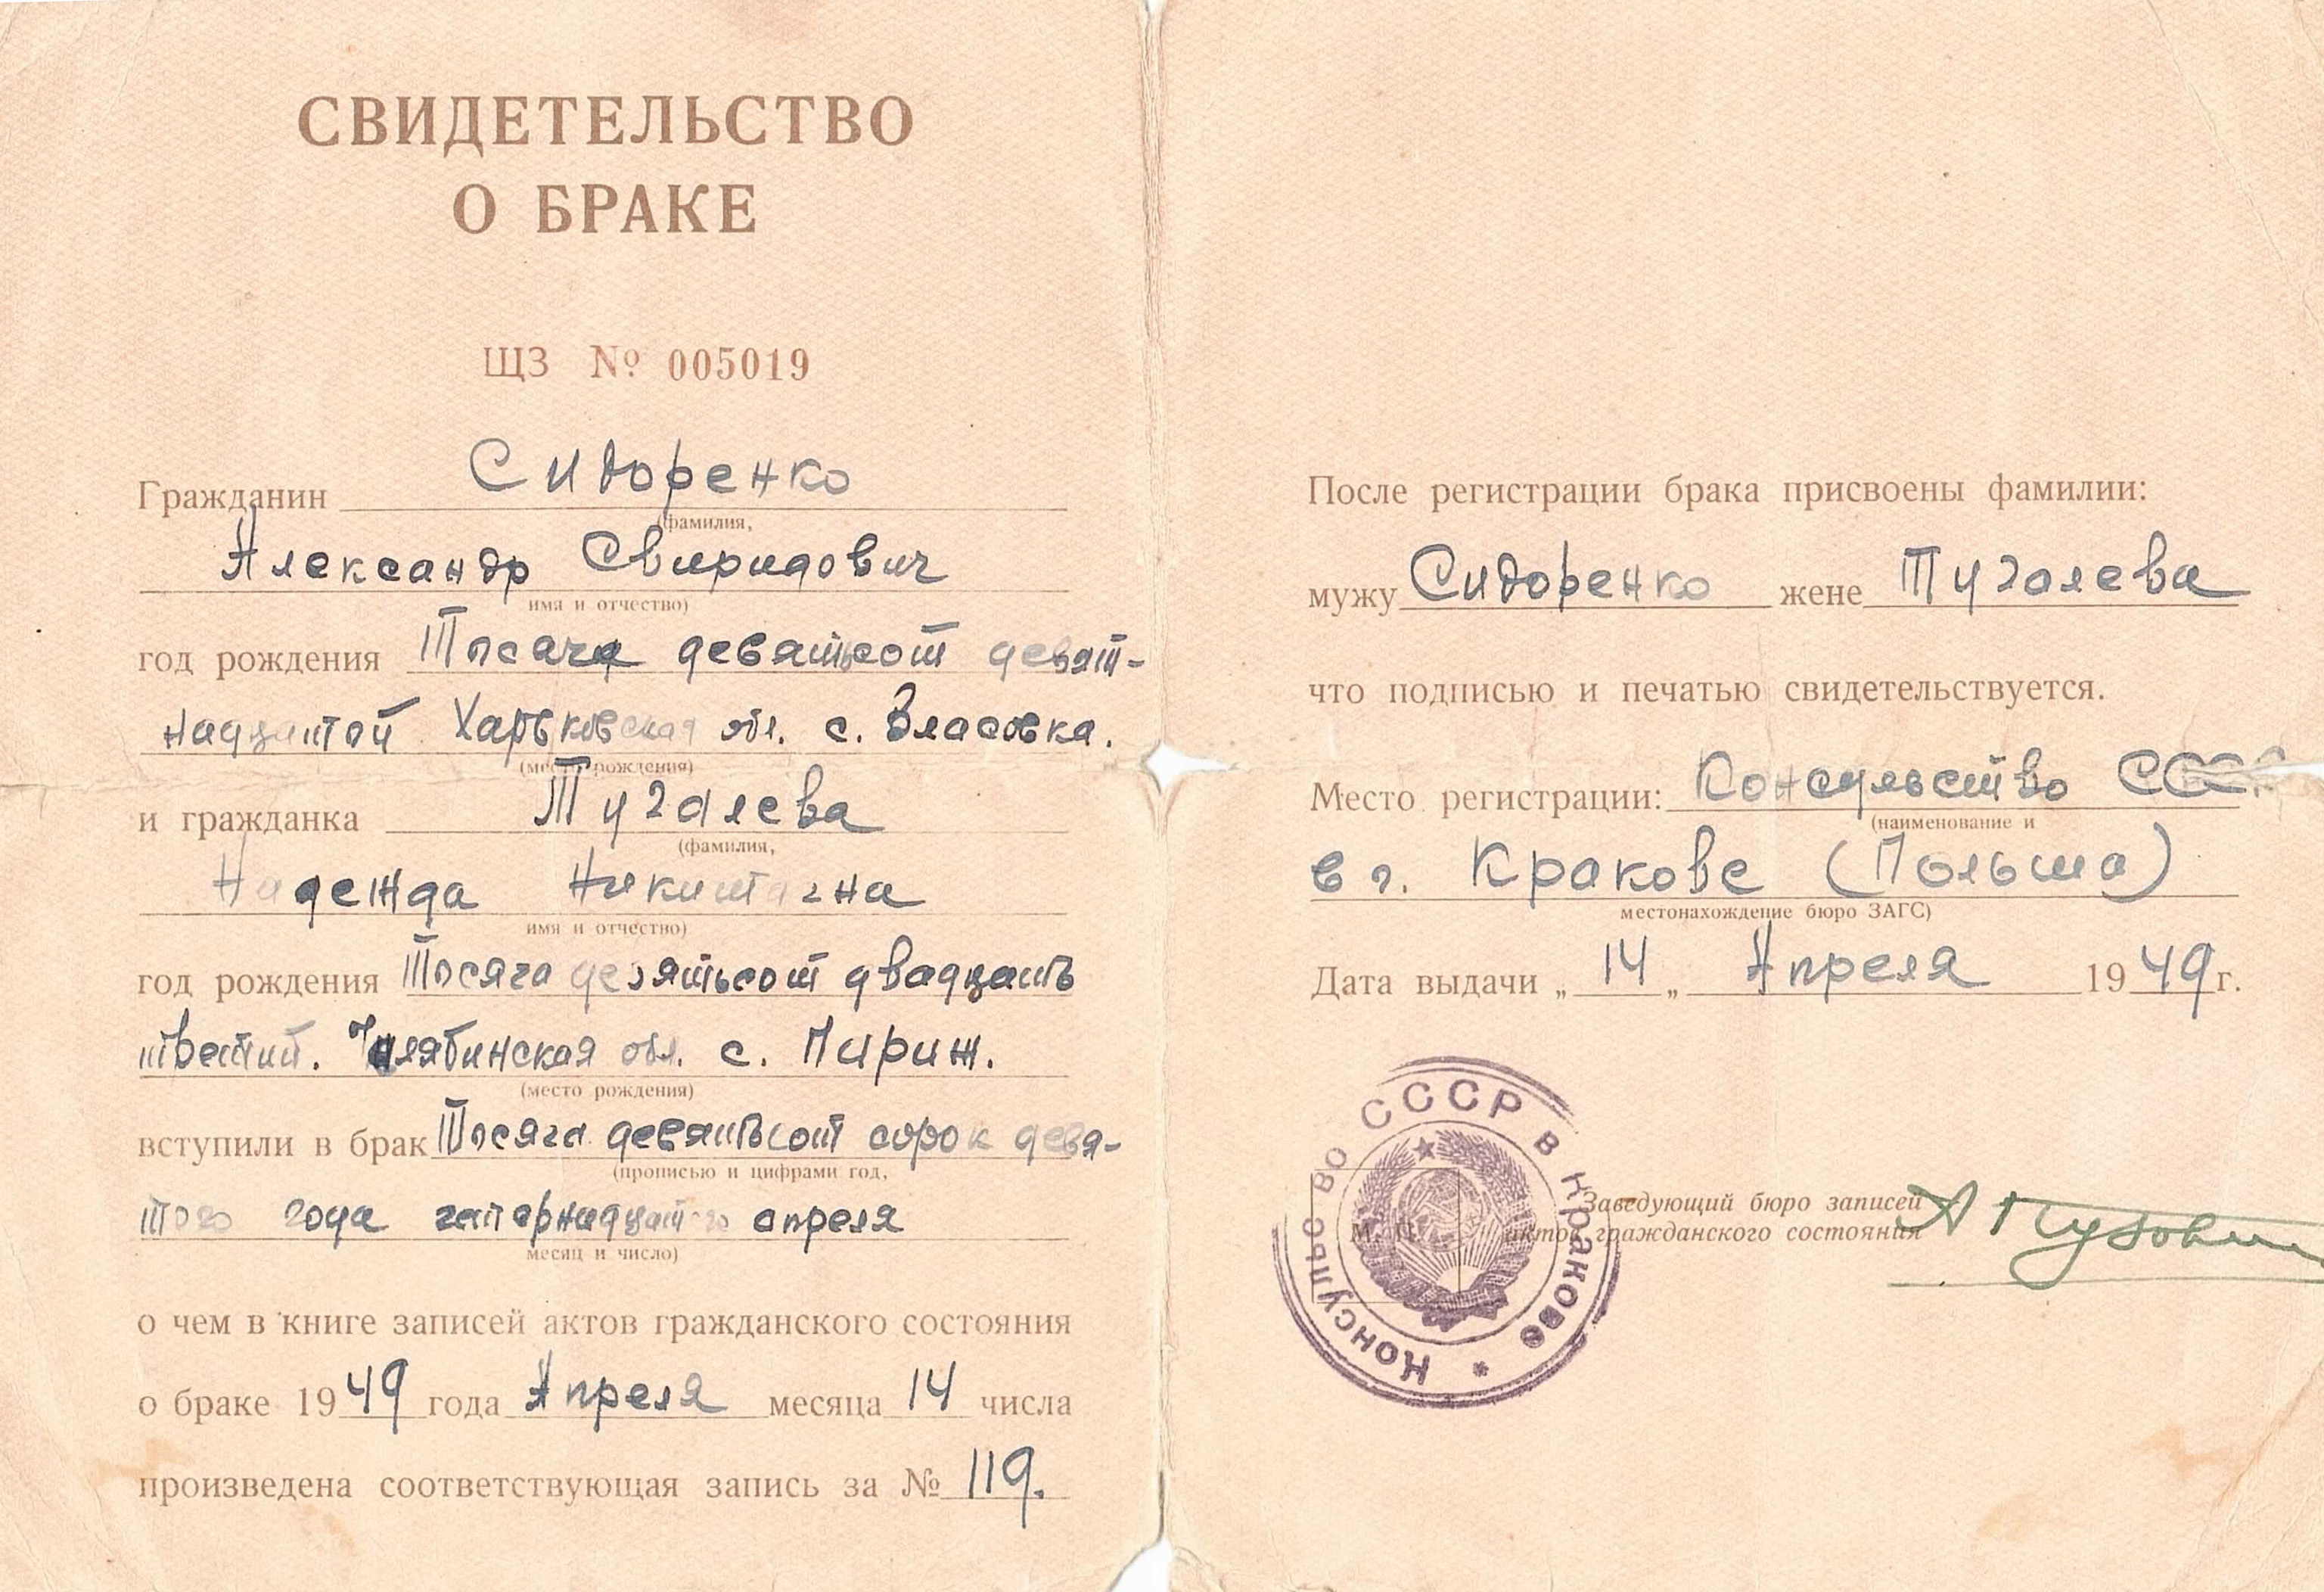 СВИДЕТЕЛЬСТВО
О БРАКЕ
ЩЗ № 005019
Гражданин Сидоренко
(фамилия,
Александр Свиридович
имя и отчество)
год рождения Тысяча девятьсот девят-
надцатой Харьковская обл. с. Власовка.
(место рождения)
и гражданка Тугалева
(фамилия,
Надежда Никитична
имя и отчество)
год рождения Тысяча девятьсот двадцать
третий. Челябинская обл. с. Париж.
(место рождения)
вступили в брак Тысяча девятьсот сорок девя-
(прописью и цифрами год,
того года четырнадцатого апреля
месяц и число)
о чем в книге записей актов гражданского состояния
о браке 1949 года Апреля месяца 14 числа
произведена соответствующая запись за № 119.
После регистрации брака присвоены фамилии:
мужу Сидоренко жене Тугалева
что подписью и печатью свидетельствуется.
Место регистрации: Консульство СССР
(наименование и
в г. Кракове (Польша)
местонахождение бюро ЗАГС)
Дата выдачи „14„ Апреля 1949 г.
Консульство СССР в Кракове *
М. П.
Заведующий бюро записей
актов гражданского состояния